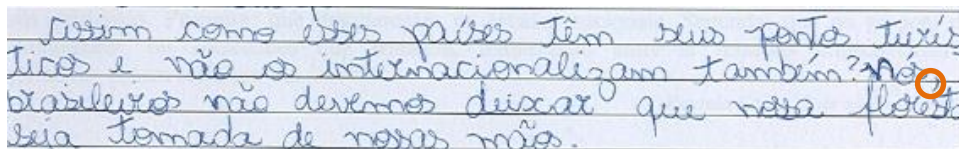 Assim como esses países têm seus pontos turís
ticos e não os internacionalizam também? Nós,
brasileiros não devemos deixar que nossa florest
seja tomada de nossas mãos.